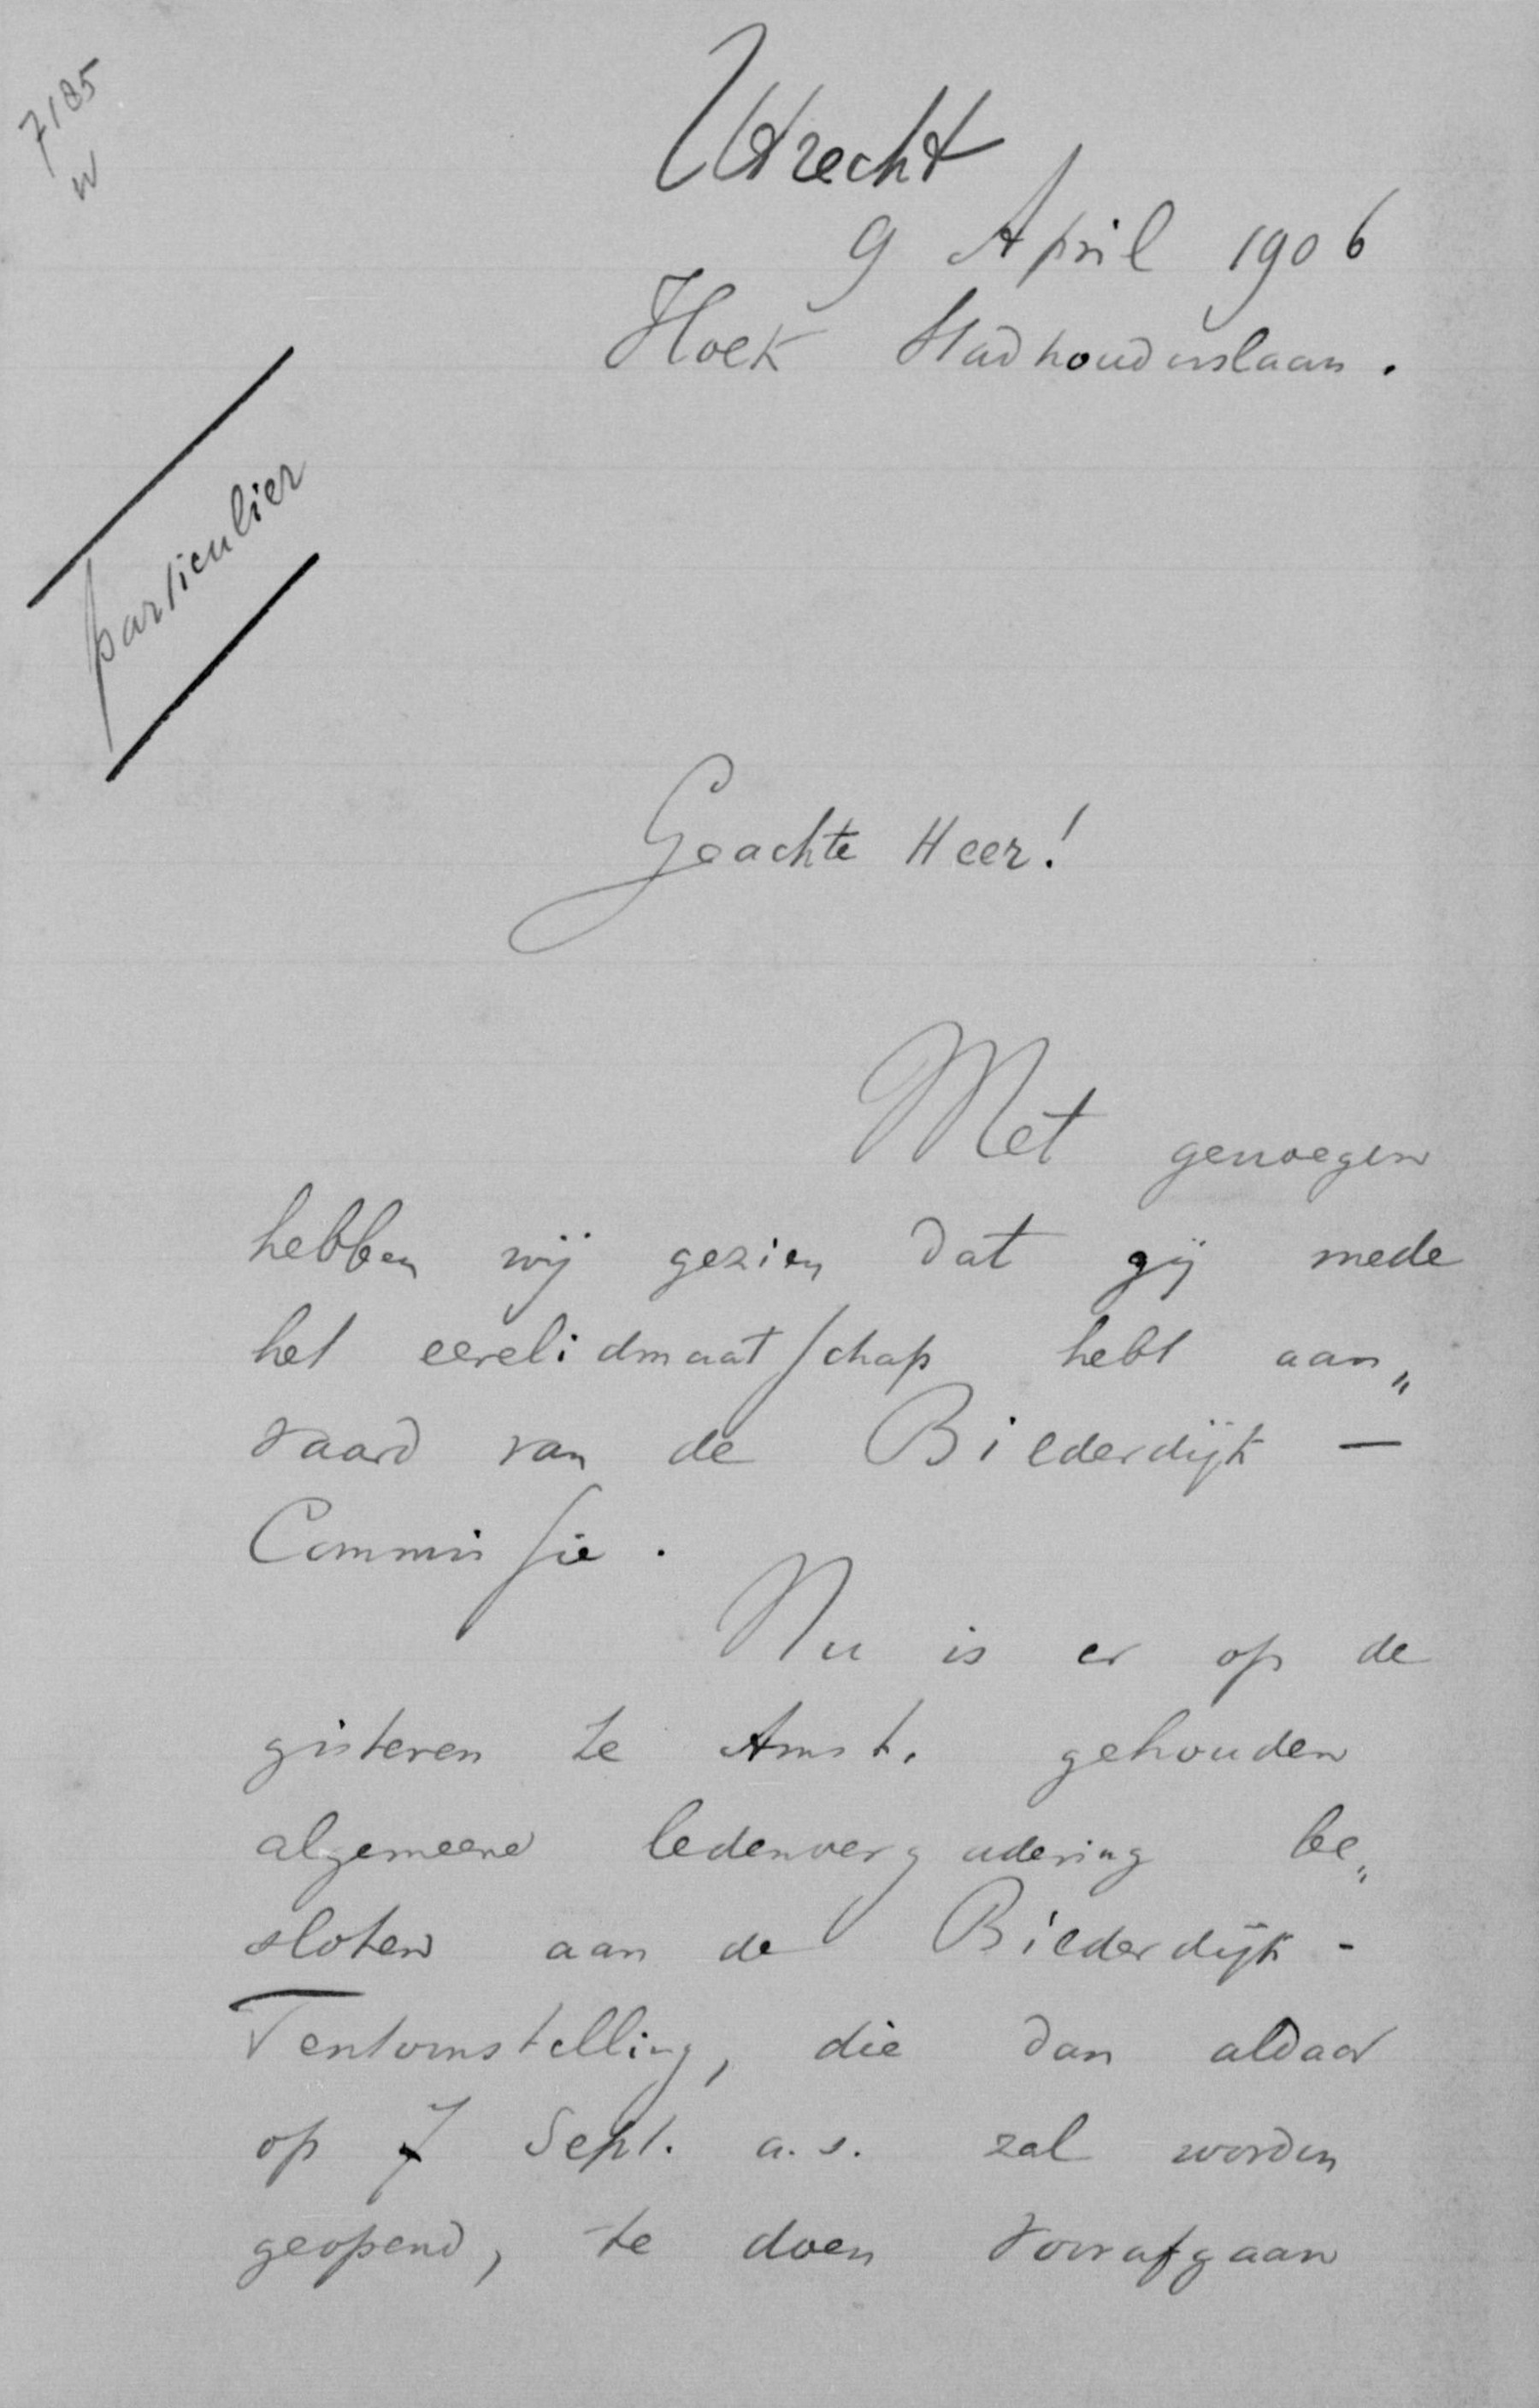 7185
W
Utrecht
9 April 1906
Hoek Stadhouderslaan.
particulier
Geachte Heer!
Met genoegen
hebben wij gezien dat gij mede
het eerelidmaatschap hebt aan„
vaard van de Bilderdijk —
Commissie.
Nu is er op de
gisteren te Amst. gehouden
algemeene ledenvergadering be„
sloten aan de Bilderdijk -
Tentoonstelling, die dan aldaar
op 7 Sept. a.s. zal worden
geopend, te doen voorafgaan